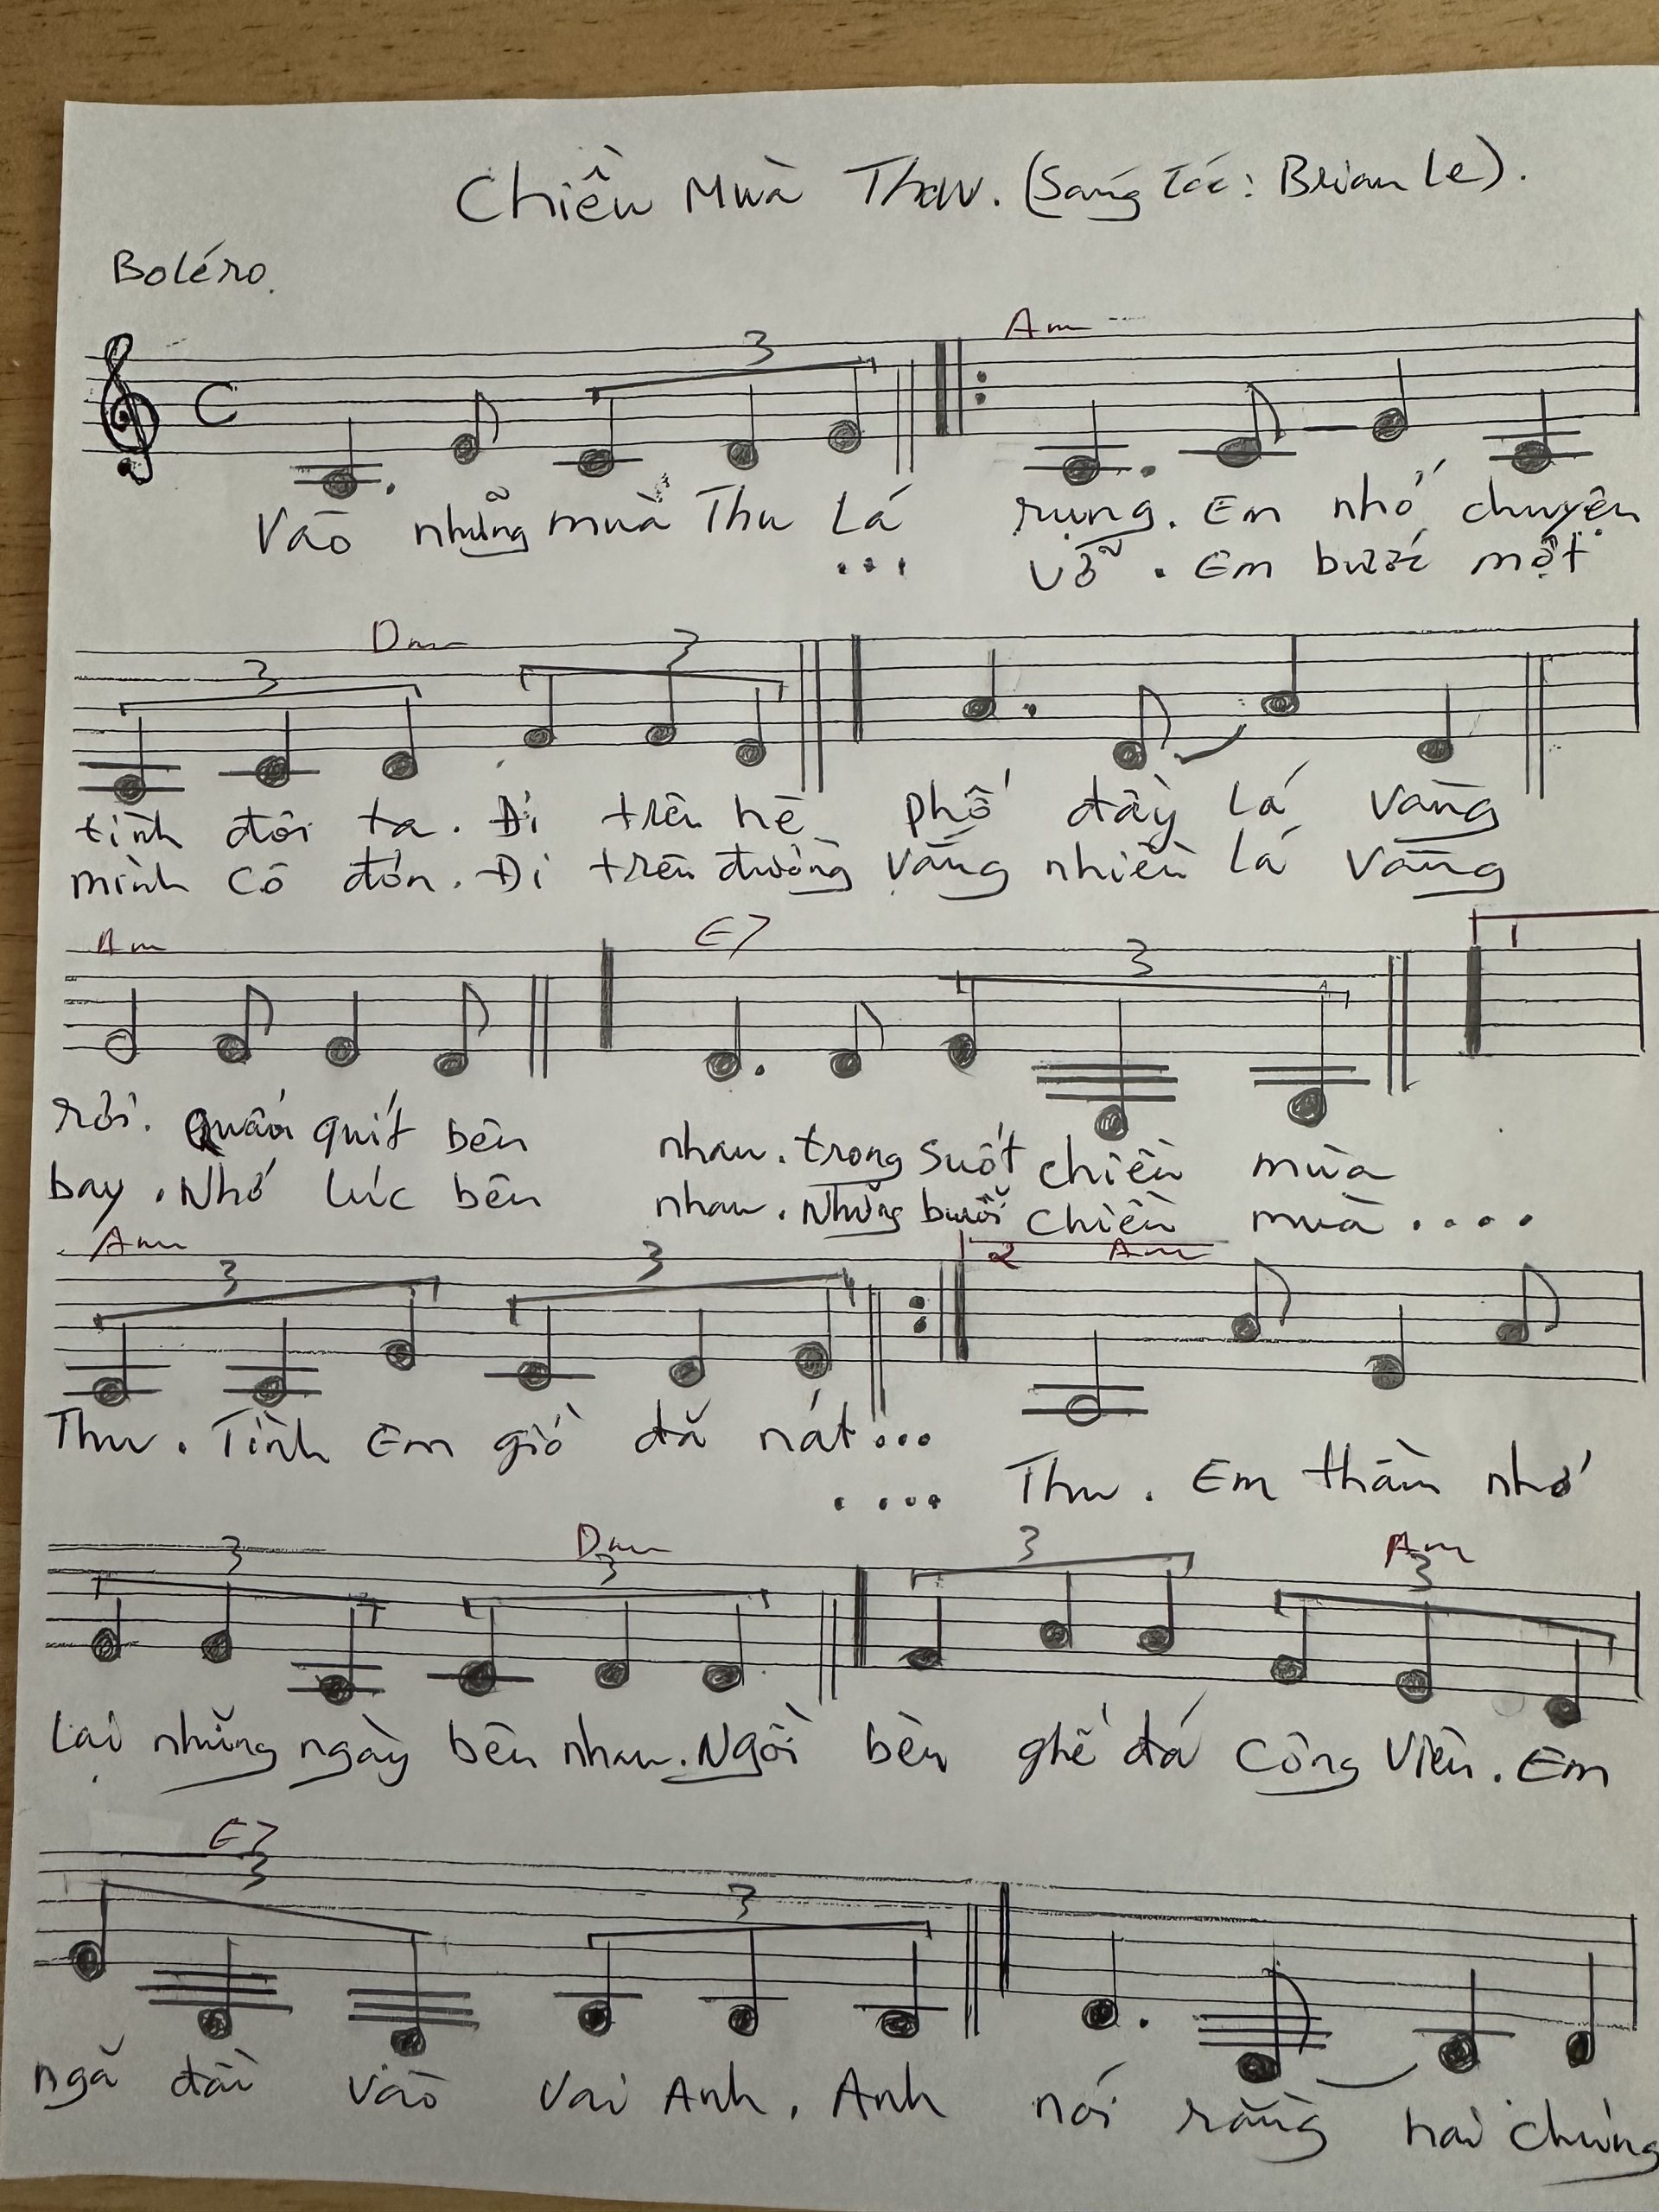 Chiều Mùa Thu. (Sáng tác: Brian Le).
Boléro.
3 Am
C
Vào những mùa Thu Lá rụng. Em nhớ chuyện
... vỡ. Em bước một
3 Dm 3
tình đôi ta. Đi trên hè phố đầy lá vàng
mình cô đơn. Đi trên đường vắng nhiều lá vàng
Am E7 3 1
rơi. quấn quít bên nhau. trong suốt chiều mùa
bay. Nhớ lúc bên nhau. Những buổi chiều mùa....
Am 3 3 2 Am
Thu. Tình Em giờ đã nát...
.... Thu. Em thầm nhớ
3 Dm 3 3 Am 3
Lại những ngày bên nhau. Ngồi bên ghế đá Công Viên. Em
E7 3 3
ngã đầu vào vai Anh. Anh nói rằng hai chúng